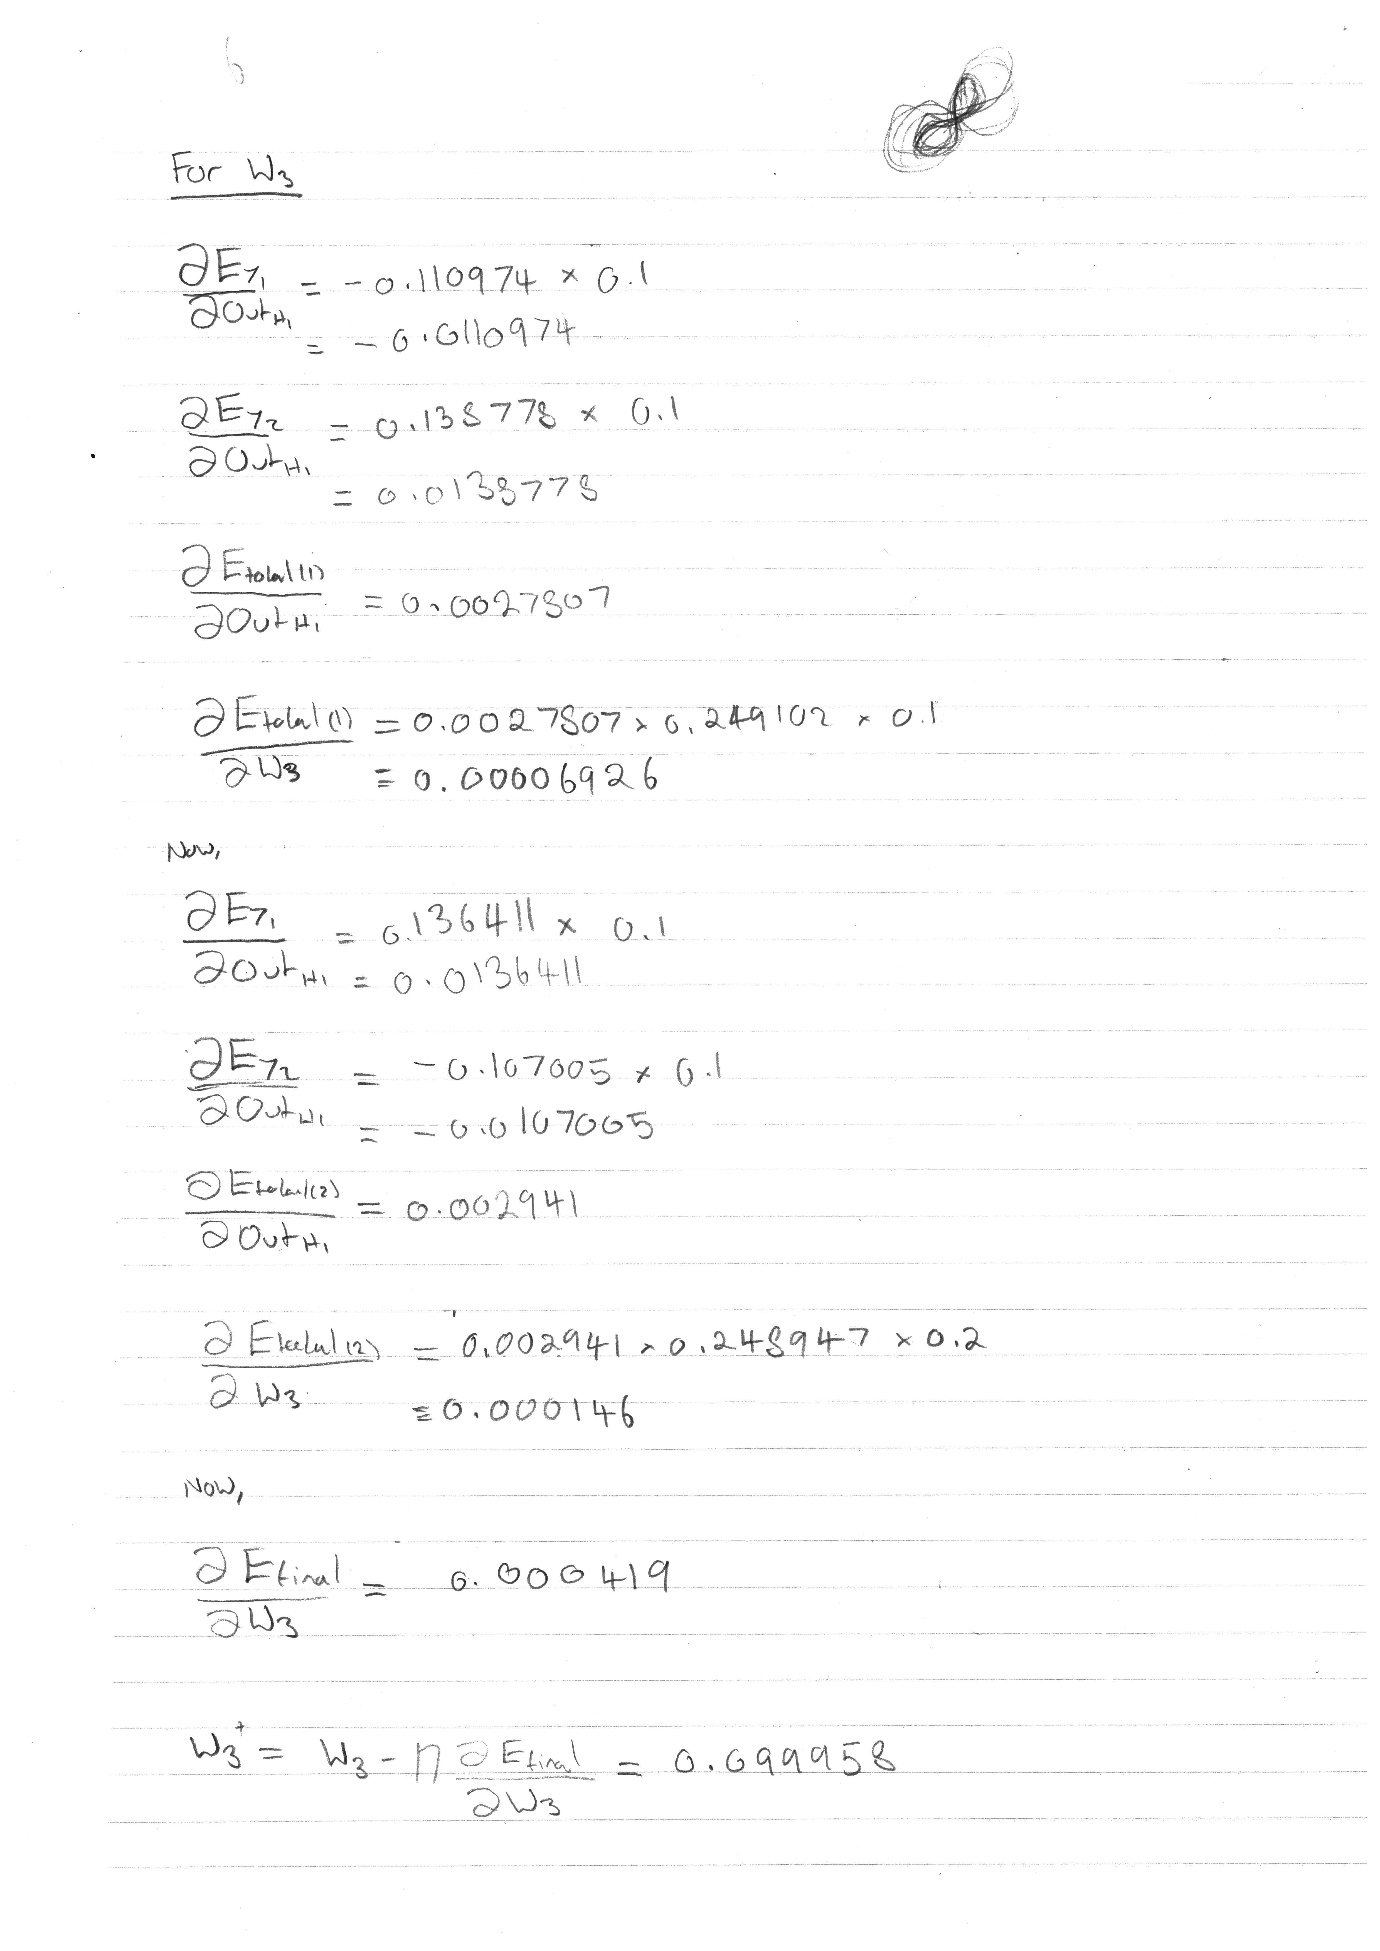 6
For W3
∂Ey1/∂OutH1 = -0.110974 × 0.1
= -0.0110974
∂Ey2/∂OutH1 = 0.138778 × 0.1
= 0.0138778
∂Etotal(1)/∂OutH1 = 0.0027807
∂Etotal(1)/∂W3 = 0.0027807 × 0.249102 × 0.1
= 0.00006926
Now,
∂Ey1/∂OutH1 = 0.136411 × 0.1
= 0.0136411
∂Ey2/∂OutH1 = -0.107005 × 0.1
= -0.0107005
∂Etotal(2)/∂OutH1 = 0.002941
∂Etotal(2)/∂W3 = 0.002941 × 0.248947 × 0.2
= 0.000146
Now,
∂Efinal/∂W3 = 0.000419
W3⁺ = W3 - η ∂Efinal/∂W3 = 0.099958